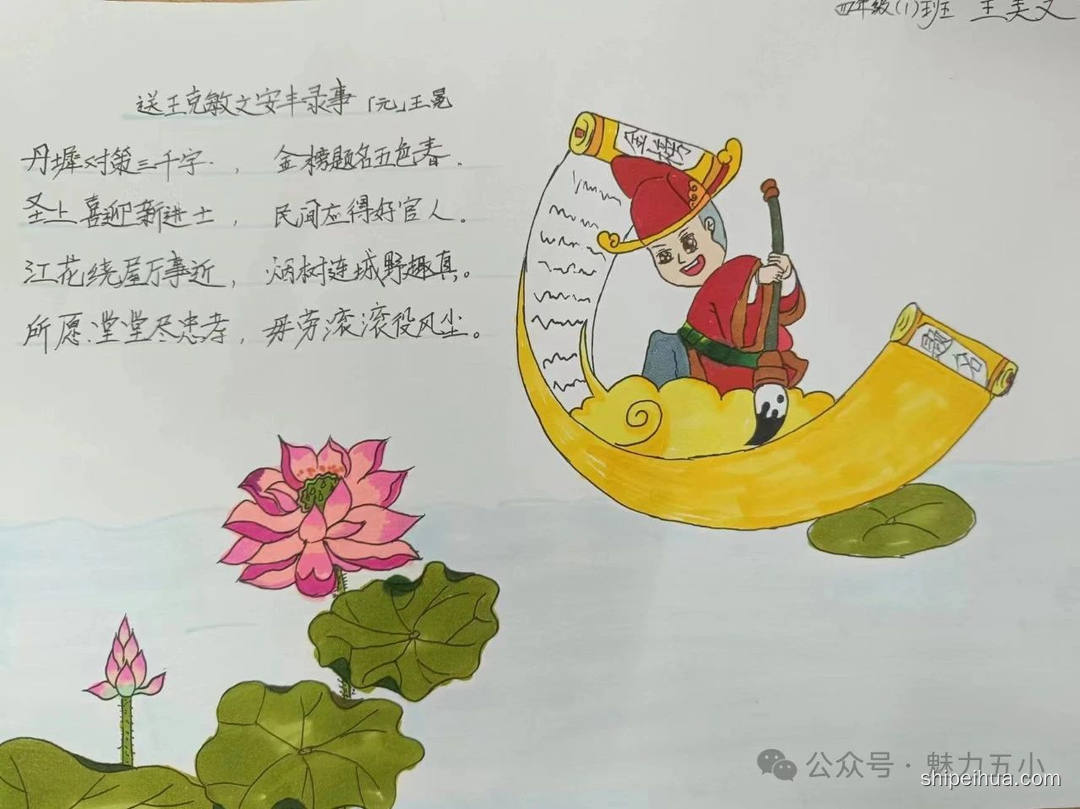 四年级(1)班 王美文
送王克敏之安丰录事 「元」王冕
丹墀对策三千字, 金榜题名五色春.
圣上喜迎新进士, 民间应得好官人。
江花绕屋万事近, 烟树连城野趣真。
所愿堂堂尽忠孝, 毋劳滚滚役风尘。
金榜
题名
公众号·魅力五小
shipeihua.com